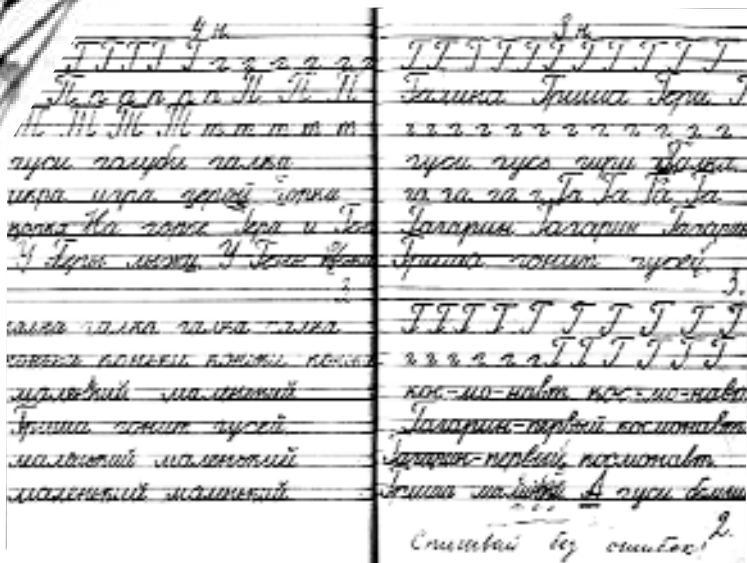 4 н.
Г Г Г Г Г г г г г г г г
П п а п р п П П П
Т Т Т Т т т т т т
гуси голуби галка
икра игра герой горка
На горке Гера и
У Геры лыжи У Гены
галка галка галка галка
коньки коньки коньки
маленький маленький
Гриша гонит гусей
маленький маленький
маленький маленький
3 н.
Г Г Г Г Г Г Г Г Г Г Г
Галина Гриша Геры Г
г г г г г г г г г г г г г
гуси гусь гири галка
га га га г Га Га Га Га
Гагарин Гагарин Гагарин
Гриша гонит гусей
3.
Г Г Г Г Г Г Г Г Г
г г г г г г Г Г Г Г Г Г
кос-мо-навт кос-мо-навт
Гагарин-первый космонавт
Гагарин-первый космонавт
Гриша А гуси
2.
Списывай без ошибок!